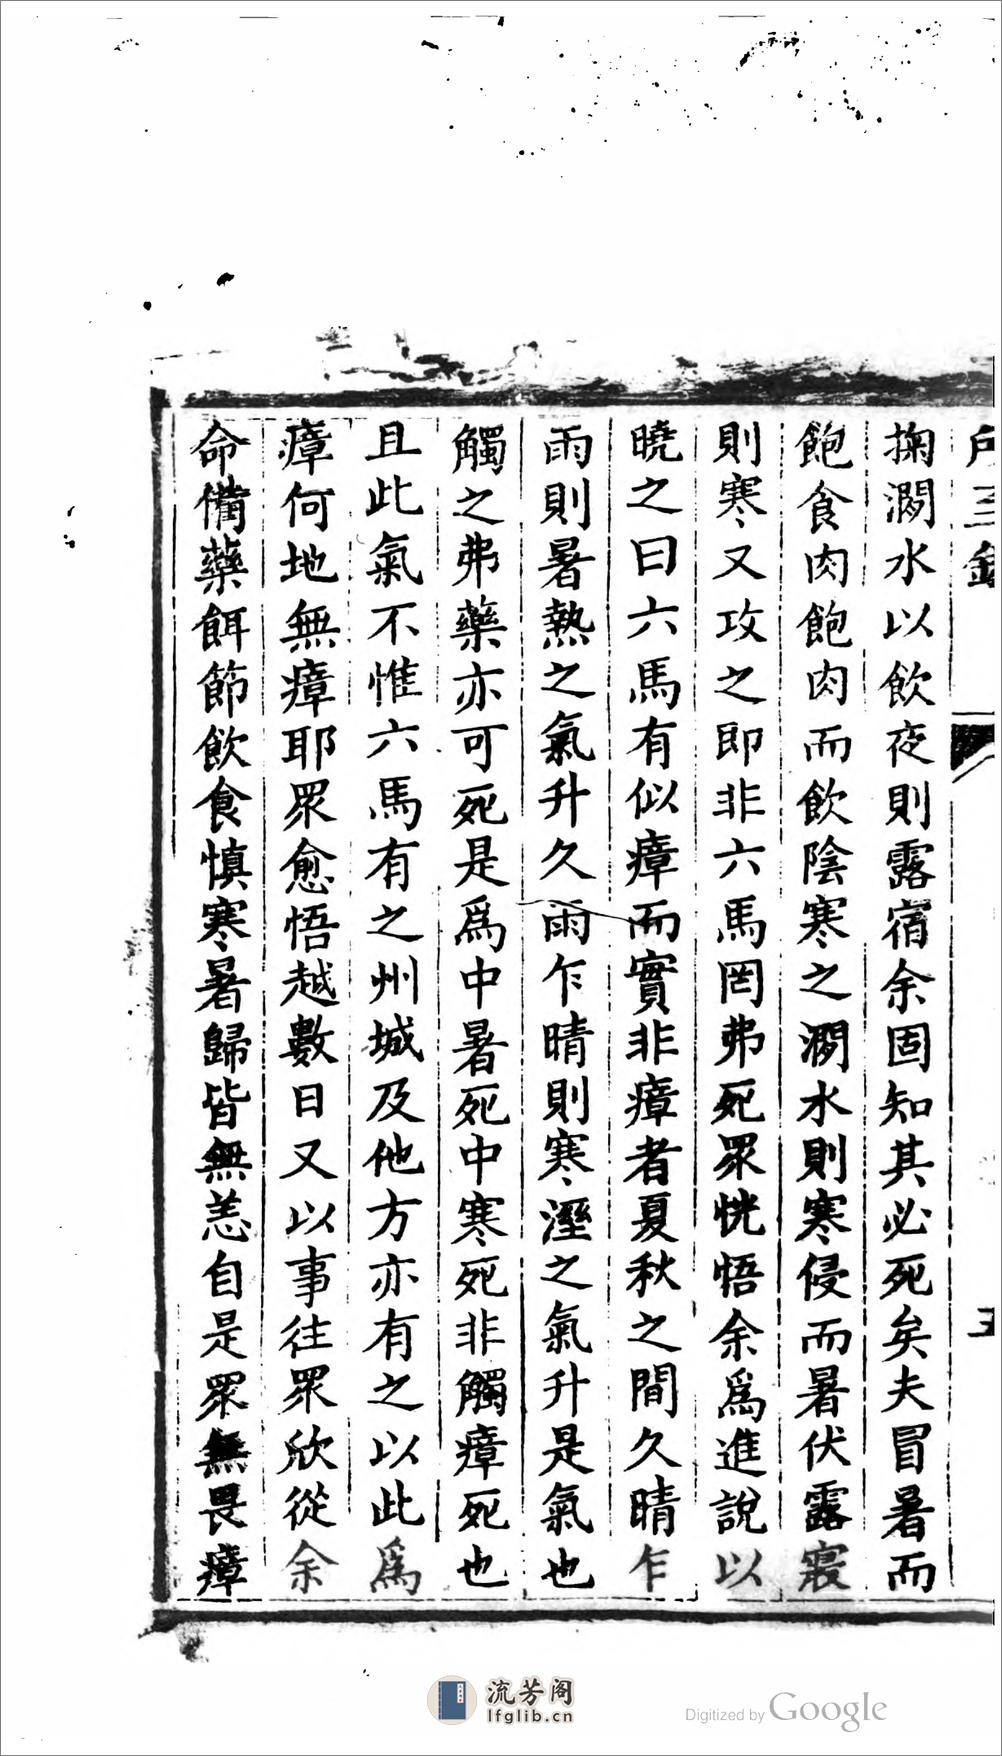 掬澗水以飲夜則露宿余固知其必死矣夫冒暑而
飽食肉飽肉而飲陰寒之澗水則寒侵而暑伏露寢
則寒又攻之即非六馬罔弗死眾恍悟余爲進說以
曉之曰六馬有似瘴而實非瘴者夏秋之間久晴乍
雨則暑熱之氣升久雨乍晴則寒溼之氣升是氣也
觸之弗藥亦可死是爲中暑死中寒死非觸瘴死也
且此氣不惟六馬有之州城及他方亦有之以此爲
瘴何地無瘴耶眾愈悟越數日又以事往眾欣從余
命備藥餌節飲食慎寒暑歸皆無恙自是眾無畏瘴
流芳阁
lfglib.cn
Digitized by Google